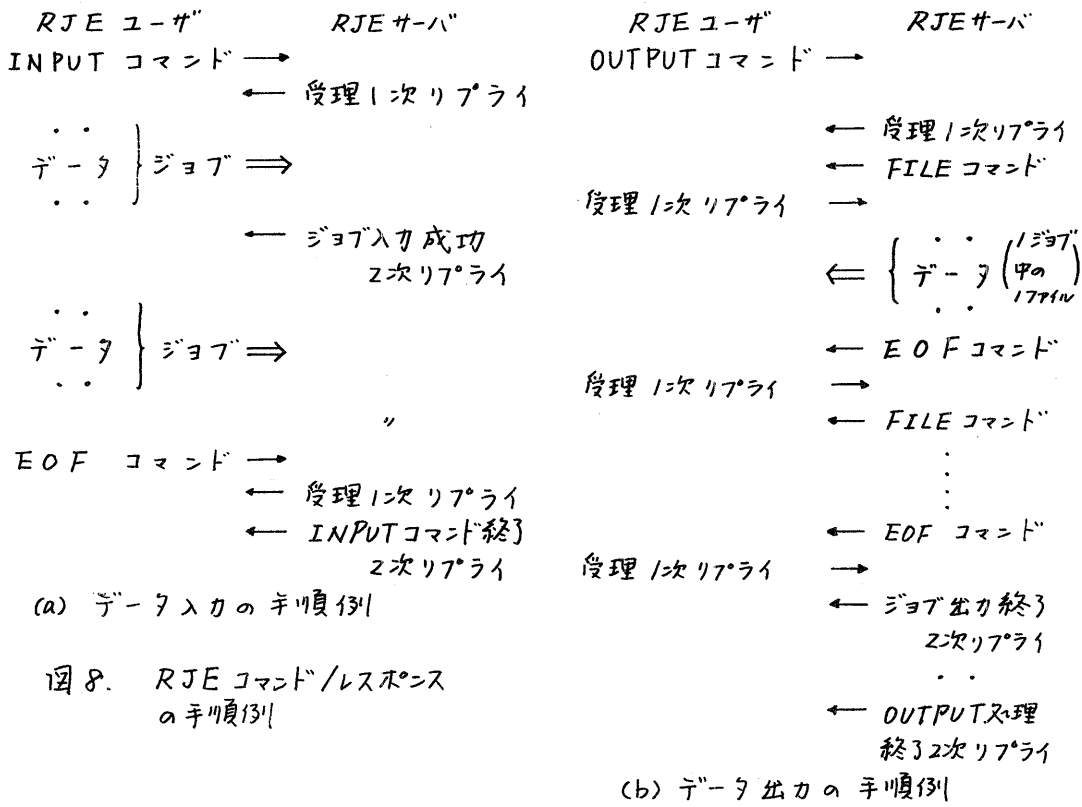 RJE ユーザ RJE サーバ
INPUT コマンド →
← 受理1次リプライ
・・
データ } ジョブ ⇒
・・
← ジョブ入力成功
2次リプライ
・・
データ } ジョブ ⇒
・・
〃
EOF コマンド →
← 受理1次リプライ
← INPUTコマンド終了
2次リプライ
(a) データ入力の手順例
図8. RJE コマンド/レスポンス
の手順例
RJE ユーザ RJEサーバ
OUTPUTコマンド →
← 受理1次リプライ
← FILEコマンド
受理1次リプライ →
・・
⇐ { データ (1ジョブ
中の
1ファイル)
・・
← EOFコマンド
受理1次リプライ →
← FILEコマンド
・
・
・
・
← EOF コマンド
受理1次リプライ →
← ジョブ出力終了
2次リプライ
・・
← OUTPUT処理
終了2次リプライ
(b) データ出力の手順例